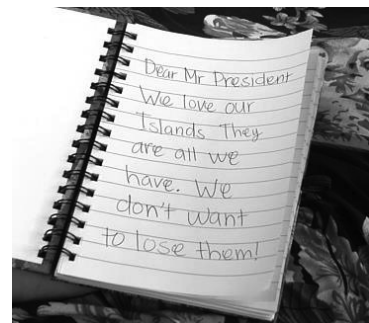 Dear Mr President
We love our
Islands They
are all we
have. We
don't want
to lose them!